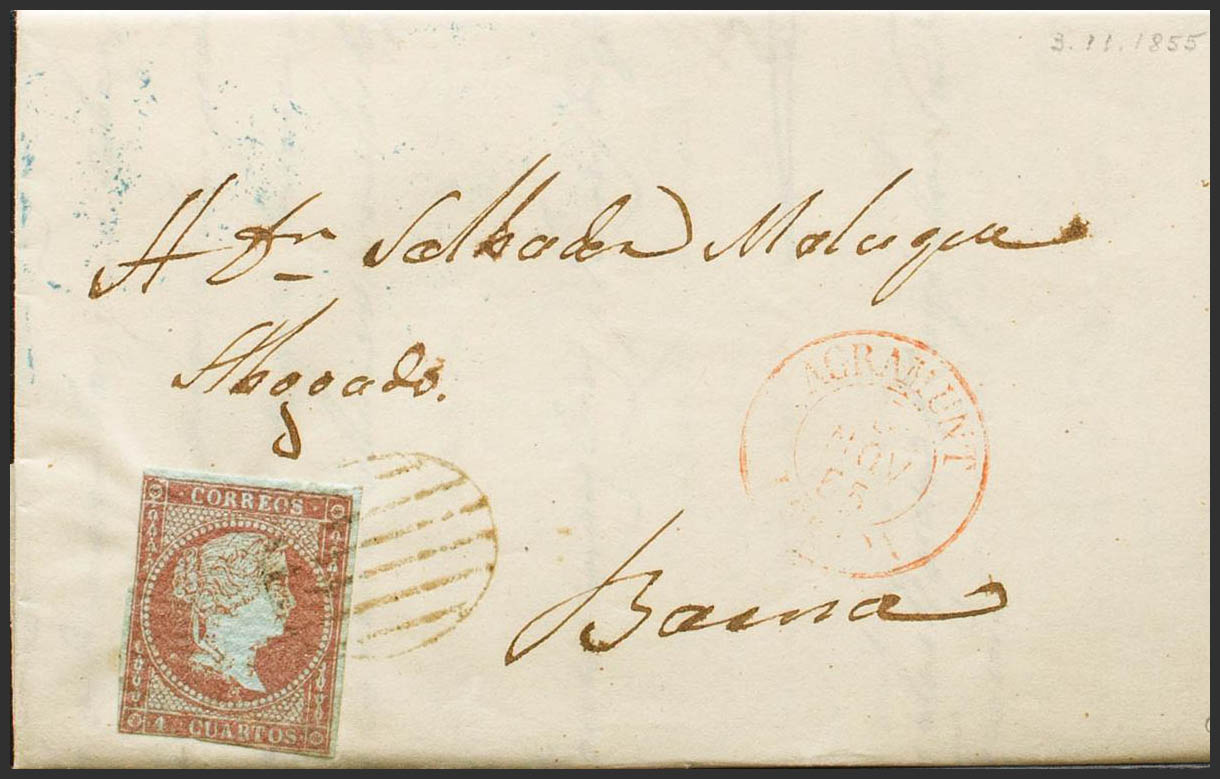 3.11.1855
A Dn Salbador Maluquer
Abogado.
AGRAMUNT
NOV
55
CORREOS
Barna
4 CUARTOS